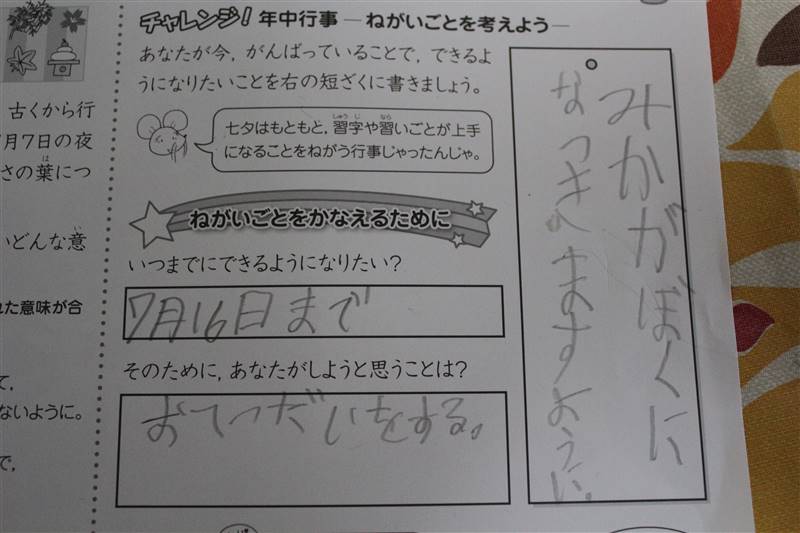 古くから行
月7日の夜
さの葉につ
いどんな意
れた意味が合
て，
ないように。
で，
チャレンジ！ 年中行事 －ねがいごとを考えよう－
あなたが今，がんばっていることで，できるよ
うになりたいことを右の短ざくに書きましょう。
七夕はもともと，習字や習いごとが上手
になることをねがう行事じゃったんじゃ。
ねがいごとをかなえるために
いつまでにできるようになりたい？
7月16日まで
そのために，あなたがしようと思うことは？
おてつだいをする。
みかがぼくに
なつきますように。